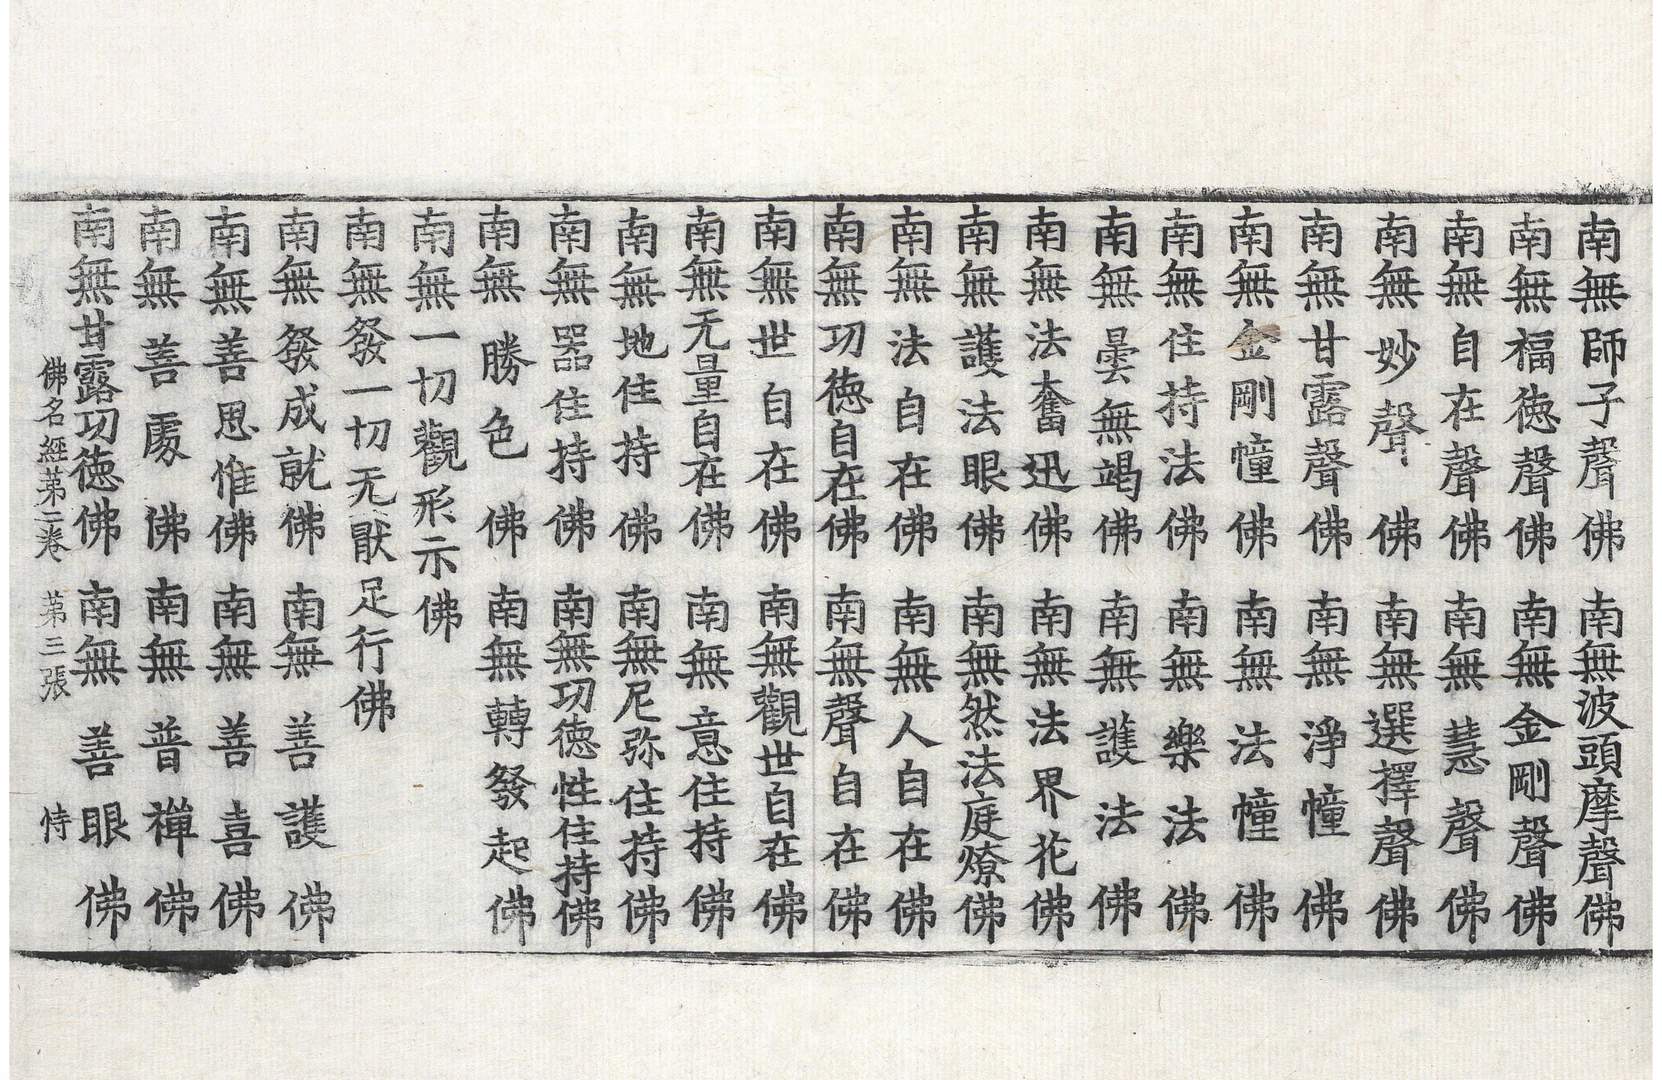 南無師子聲佛 南無波頭摩聲佛
南無福徳聲佛 南無金剛聲佛
南無自在聲佛 南無慧聲佛
南無妙聲佛 南無選擇聲佛
南無甘露聲佛 南無淨幢佛
南無金剛幢佛 南無法幢佛
南無住持法佛 南無樂法佛
南無曇無竭佛 南無護法佛
南無法奮迅佛 南無法界花佛
南無護法眼佛 南無然法庭燎佛
南無法自在佛 南無人自在佛
南無功徳自在佛 南無聲自在佛
南無世自在佛 南無觀世自在佛
南無无量自在佛 南無意住持佛
南無地住持佛 南無尼弥住持佛
南無器住持佛 南無功徳性住持佛
南無勝色佛 南無轉發起佛
南無一切觀形示佛
南無發一切无猒足行佛
南無發成就佛 南無善護佛
南無善思惟佛 南無善喜佛
南無善處佛 南無普禪佛
南無甘露功徳佛 南無善眼佛
佛名經苐二卷 苐三張 恃